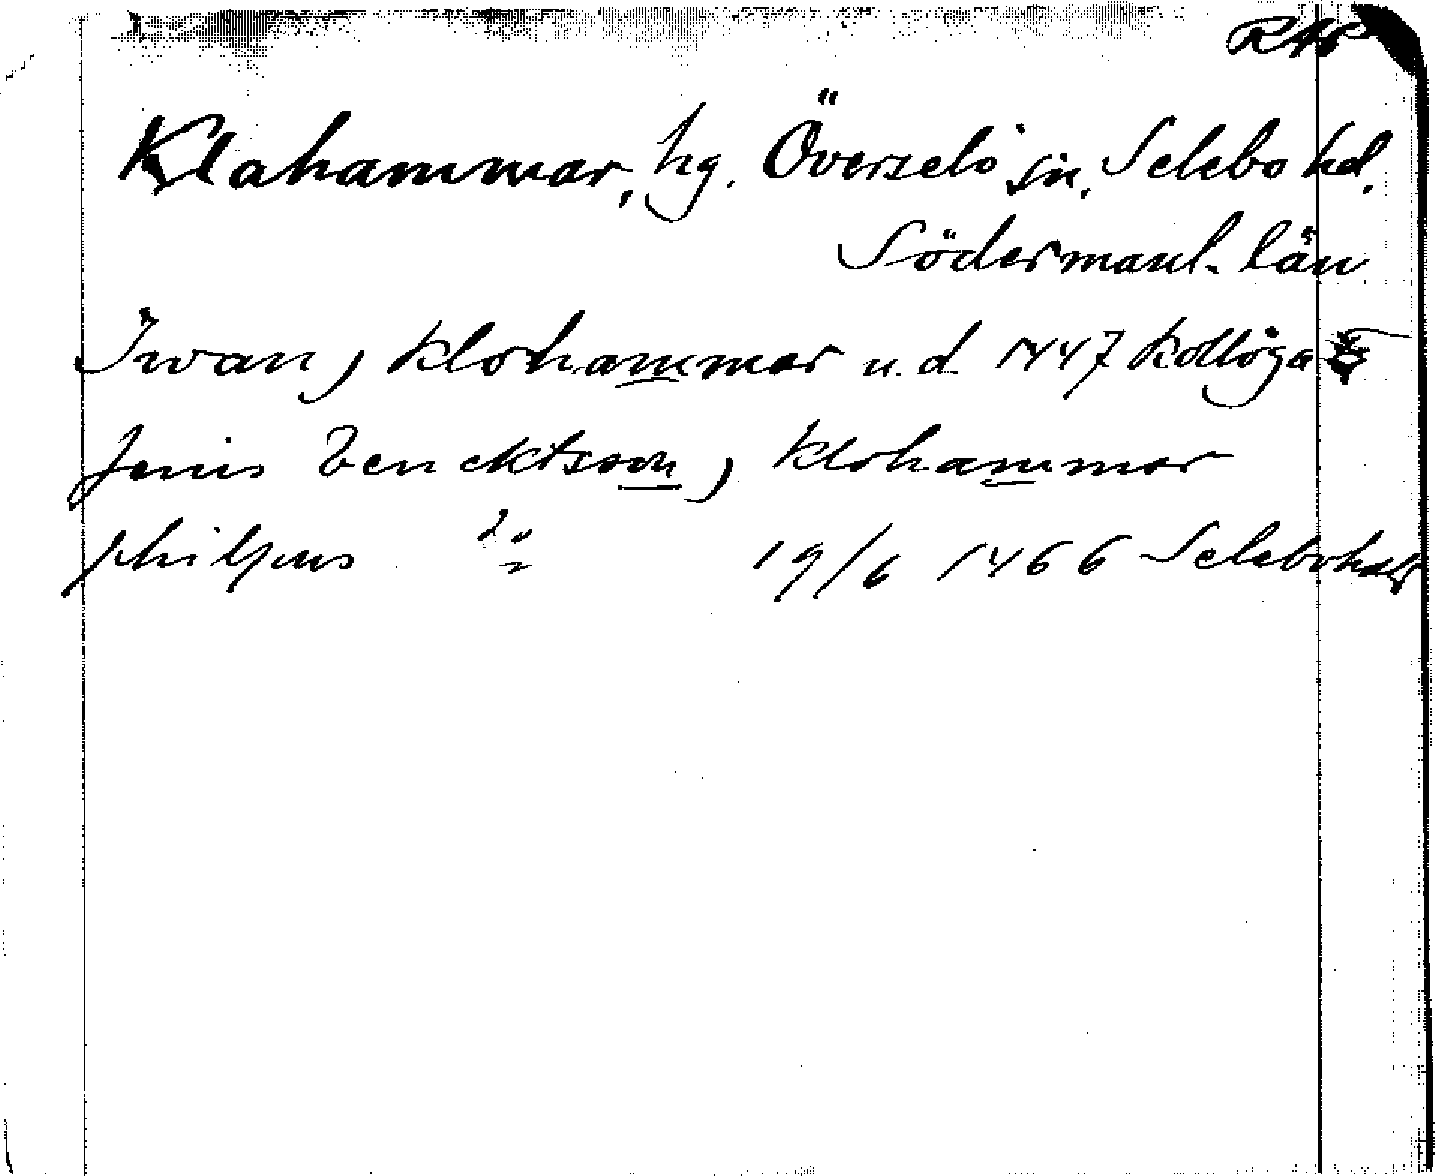 RAP
Klahammar, hg. Överselö sn, Selebo hd.
Södermanl. län
Iwan, klohammar u.d. 1447 Kollöga
Jenis benektson, klohammar
philpus 19/6 1466 Selebohdr